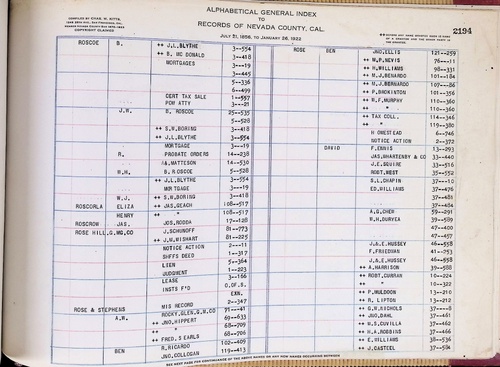 COMPILED BY CHAS. M. BITTS,
COPYRIGHT CLAIMED
ALPHABETICAL GENERAL INDEX
TO
RECORDS OF NEVADA COUNTY, CAL.
JULY 21, 1856, TO JANUARY 26, 1922
2194
ROSCOE B. ++ J.L.BLYTHE 3--554
++ B. MC DONALD 3--418
MORTGAGES 3--19
3--445
5--336
6--499
CERT TAX SALE 1--557
POW ATTY 3--21
J.W. B. ROSCOE 25--535
5--528
++ S.W.BORING 3--418
++ J.L.BLYTHE 3--554
MORTGAGE 3--19
R. PROBATE ORDERS 14--238
MATTESON 14--530
W.H. B.ROSCOE 5--528
++ J.L.BLYTHE 3--554
MORTGAGE 3--19
W.J. ++ S.W.BORING 3--418
ROSCORLA ELIZA ++ JAS.GEACH 108--517
HENRY ++ " 108--517
ROSCROW JAS. JOS.RODDA 17--128
ROSE HILL,G.MG,CO J.SCHUNOFF 81--773
++ J.M.WISHART 81--225
NOTICE ACTION 2--11
SHFFS DEED 1--317
LIEN 5--364
JUDGMENT 1--223
LEASE 3--166
INSTS F'D O.OF.S.
EXN.
ROSE & STEPHENS MIS RECORD 2--347
ROCKY,GLEN,G.M.CO 71--41
A.W. ++ JNO.HIPPERT 69--633
++ " 68--709
++ " 68--706
++ FRED.S EARLS
BEN R.RICARDO 102--409
JNO.COLLOGAN 119--413
ROSE BEN JNO.ELLIS 121--259
++ M.P.NEVIS 76--11
++ H.WILLIAMS 98--331
++ M.J.BENARDO 101--184
++ M.J.BERNARDO 107--86
++ P.BROKINTON 101--356
++ M.F.MURPHY 110--360
++ " 110--360
++ TAX COLL. 114--346
++ " 119--380
HOMESTEAD 6--746
NOTICE ACTION 2--372
DAVID F.ENNIS 13--293
JAS.WHARTENBY & CO 33--440
J.E.SQUIRE 33--516
ROBT.WEST 35--552
S.L.CHAPIN 37--10
ED.WILLIAMS 37--476
37--481
37--484
A.G.CHEW 59--291
W.H.DURYEA 39--589
47--400
47--457
J.&E.HUSSEY 46--558
F.FRIEDMAN 41--253
J.&E.HUSSEY 46--558
++ A.HARRISON 39--588
++ ROBT.CURRAN 10--224
++ " 10--322
++ P.MULDOON 13--210
++ R. LIPTON 13--212
++ G.W.NICHOLS 37----8
++ JNO.DAHL 37--461
++ M.S.CUVILLA 37--462
++ H.A.ROBBINS 37--466
++ E.WILLIAMS 38--536
++ J.CASTEEL 37--504
SEE NEXT PAGE FOR CONTINUANCE OF THE ABOVE NAMES OR ANY NEW NAMES OCCURRING BETWEEN